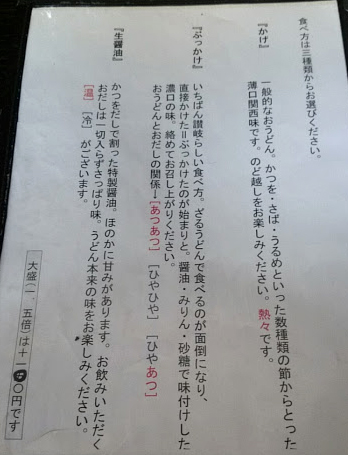 食べ方は三種類からお選びください。
『かけ』
一般的なおうどん。かつを・さば・うるめといった数種類の節からとった
薄口関西味です。のど越しをお楽しみください。熱々です。
『ぶっかけ』
いちばん讃岐らしい食べ方。ざるうどんで食べるのが面倒になり、
直接かけた=ぶっかけたのが始まりと。醤油・みりん・砂糖で味付けした
濃口の味。絡めてお召し上がりください。
おうどんとおだしの関係→[あつあつ] [ひやひや] [ひやあつ]
『生醤油』
かつをだしで割った特製醤油。ほのかに甘みがあります。お飲みいただく
おだしは一切入らずさっぱり味。うどん本来の味をお楽しみください。
[温] [冷] がございます。
大盛(一、五倍)は十一〇円です